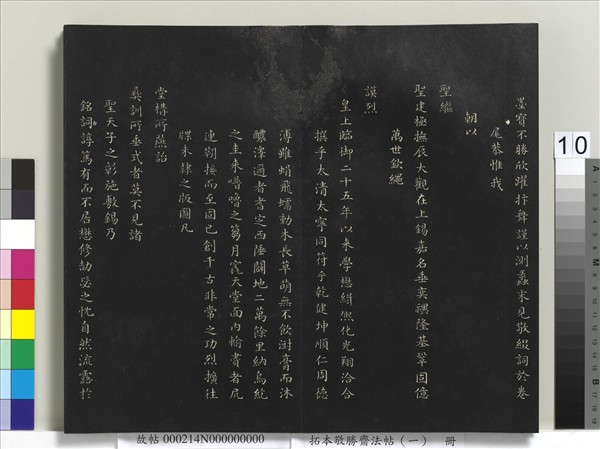 墨寶不勝欣躍抃舞謹以測蠡末見敬綴詞於卷
尾恭惟我
朝以
聖繼
聖建極撫辰大觀在上錫嘉名垂奕禩隆基鞏固億
萬世欽繩
謨烈
皇上臨御二十五年以來學懋緝熙化光翔洽合
撰乎太清太寧同符乎乾健坤順仁周德
溥雖蜎飛蠕動木長草萌無不飲澍膏而沐
醲澤過者耆定西陲闢地二萬餘里納烏紇
之圭來噆噆之芻月竁天堂面內輸賨者凥
連趾接而至固已創千古非常之功烈擴往
牒未隸之版圖凡
堂構所燕詒
彞訓所垂式者莫不見諸
聖天子之彰施敷錫乃
銘詞諄篤有而不居懋修劼毖之忱自然流露於
10
故帖 000214N000000000 拓本敬勝齋法帖(一) 冊